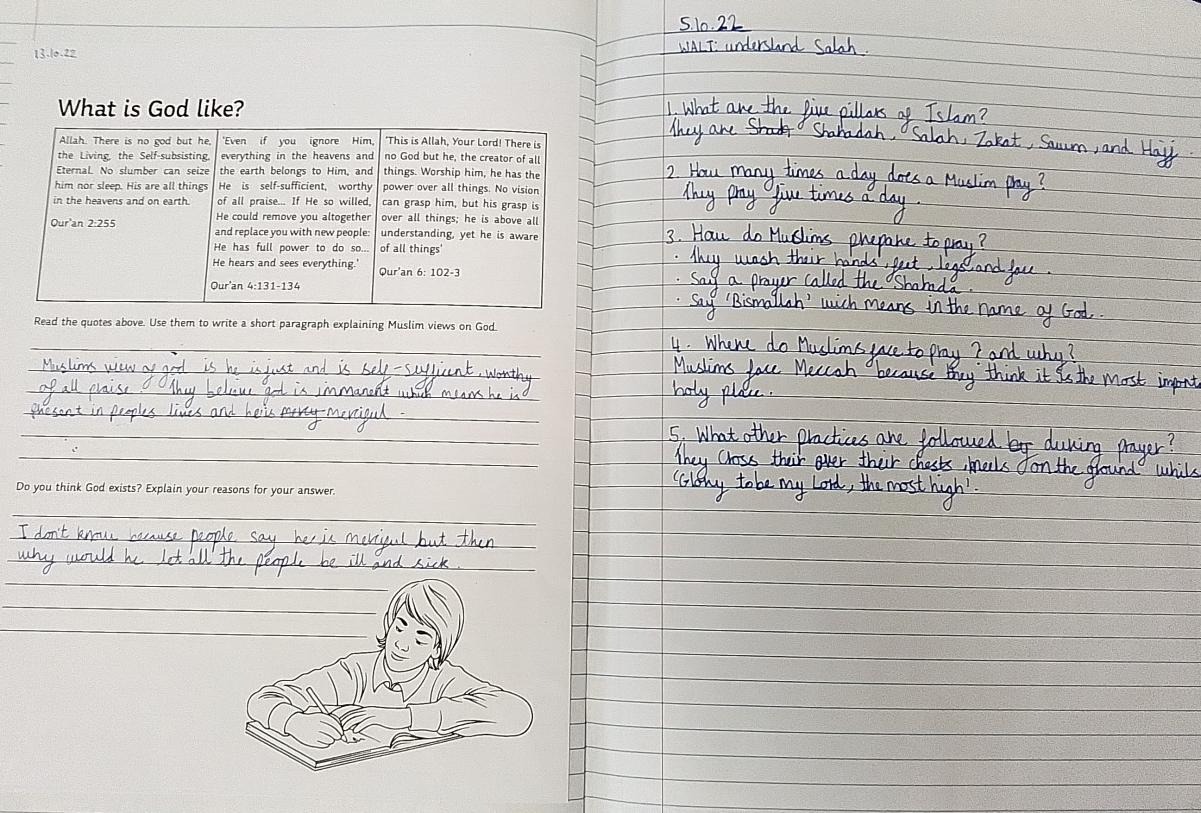 13.10.22
What is God like?
Allah. There is no god but he,
the Living, the Self-subsisting,
Eternal. No slumber can seize
him nor sleep. His are all things
in the heavens and on earth.
Qur'an 2:255
'Even if you ignore Him,
everything in the heavens and
the earth belongs to Him, and
He is self-sufficient, worthy
of all praise... If He so willed,
He could remove you altogether
and replace you with new people:
He has full power to do so...
He hears and sees everything.'
Qur'an 4:131-134
'This is Allah, Your Lord! There is
no God but he, the creator of all
things. Worship him, he has the
power over all things. No vision
can grasp him, but his grasp is
over all things; he is above all
understanding, yet he is aware
of all things'
Qur'an 6: 102-3
Read the quotes above. Use them to write a short paragraph explaining Muslim views on God.
Muslims view of god is he is just and is self-sufficent, worthy
of all praise. They believe god is immanent which means he is
present in peoples lives and he is mercy merciful.
Do you think God exists? Explain your reasons for your answer.
I don't know because people say he is merciful but then
why would he let all the people be ill and sick.
5.10.22
WALT: understand Salah.
1. What are the five pillars of Islam?
They are Shah Shahadah, Salah, Zakat, Sawm, and Hajj.
2. How many times a day does a Muslim pray?
They pray five times a day.
3. How do Muslims prepare to pray?
· They wash their hands, feet, legs and face.
· Say a prayer called the Shahada.
· Say 'Bismallah' wich means in the name of God.
4. Where do Muslims face to pray? and why?
Muslims face Meccah because they think it is the most importa
holy place.
5. What other practices are followed by during prayer?
They Cross their over their chests, kneels on the ground whils
'Glory to be my Lord, the most high'.